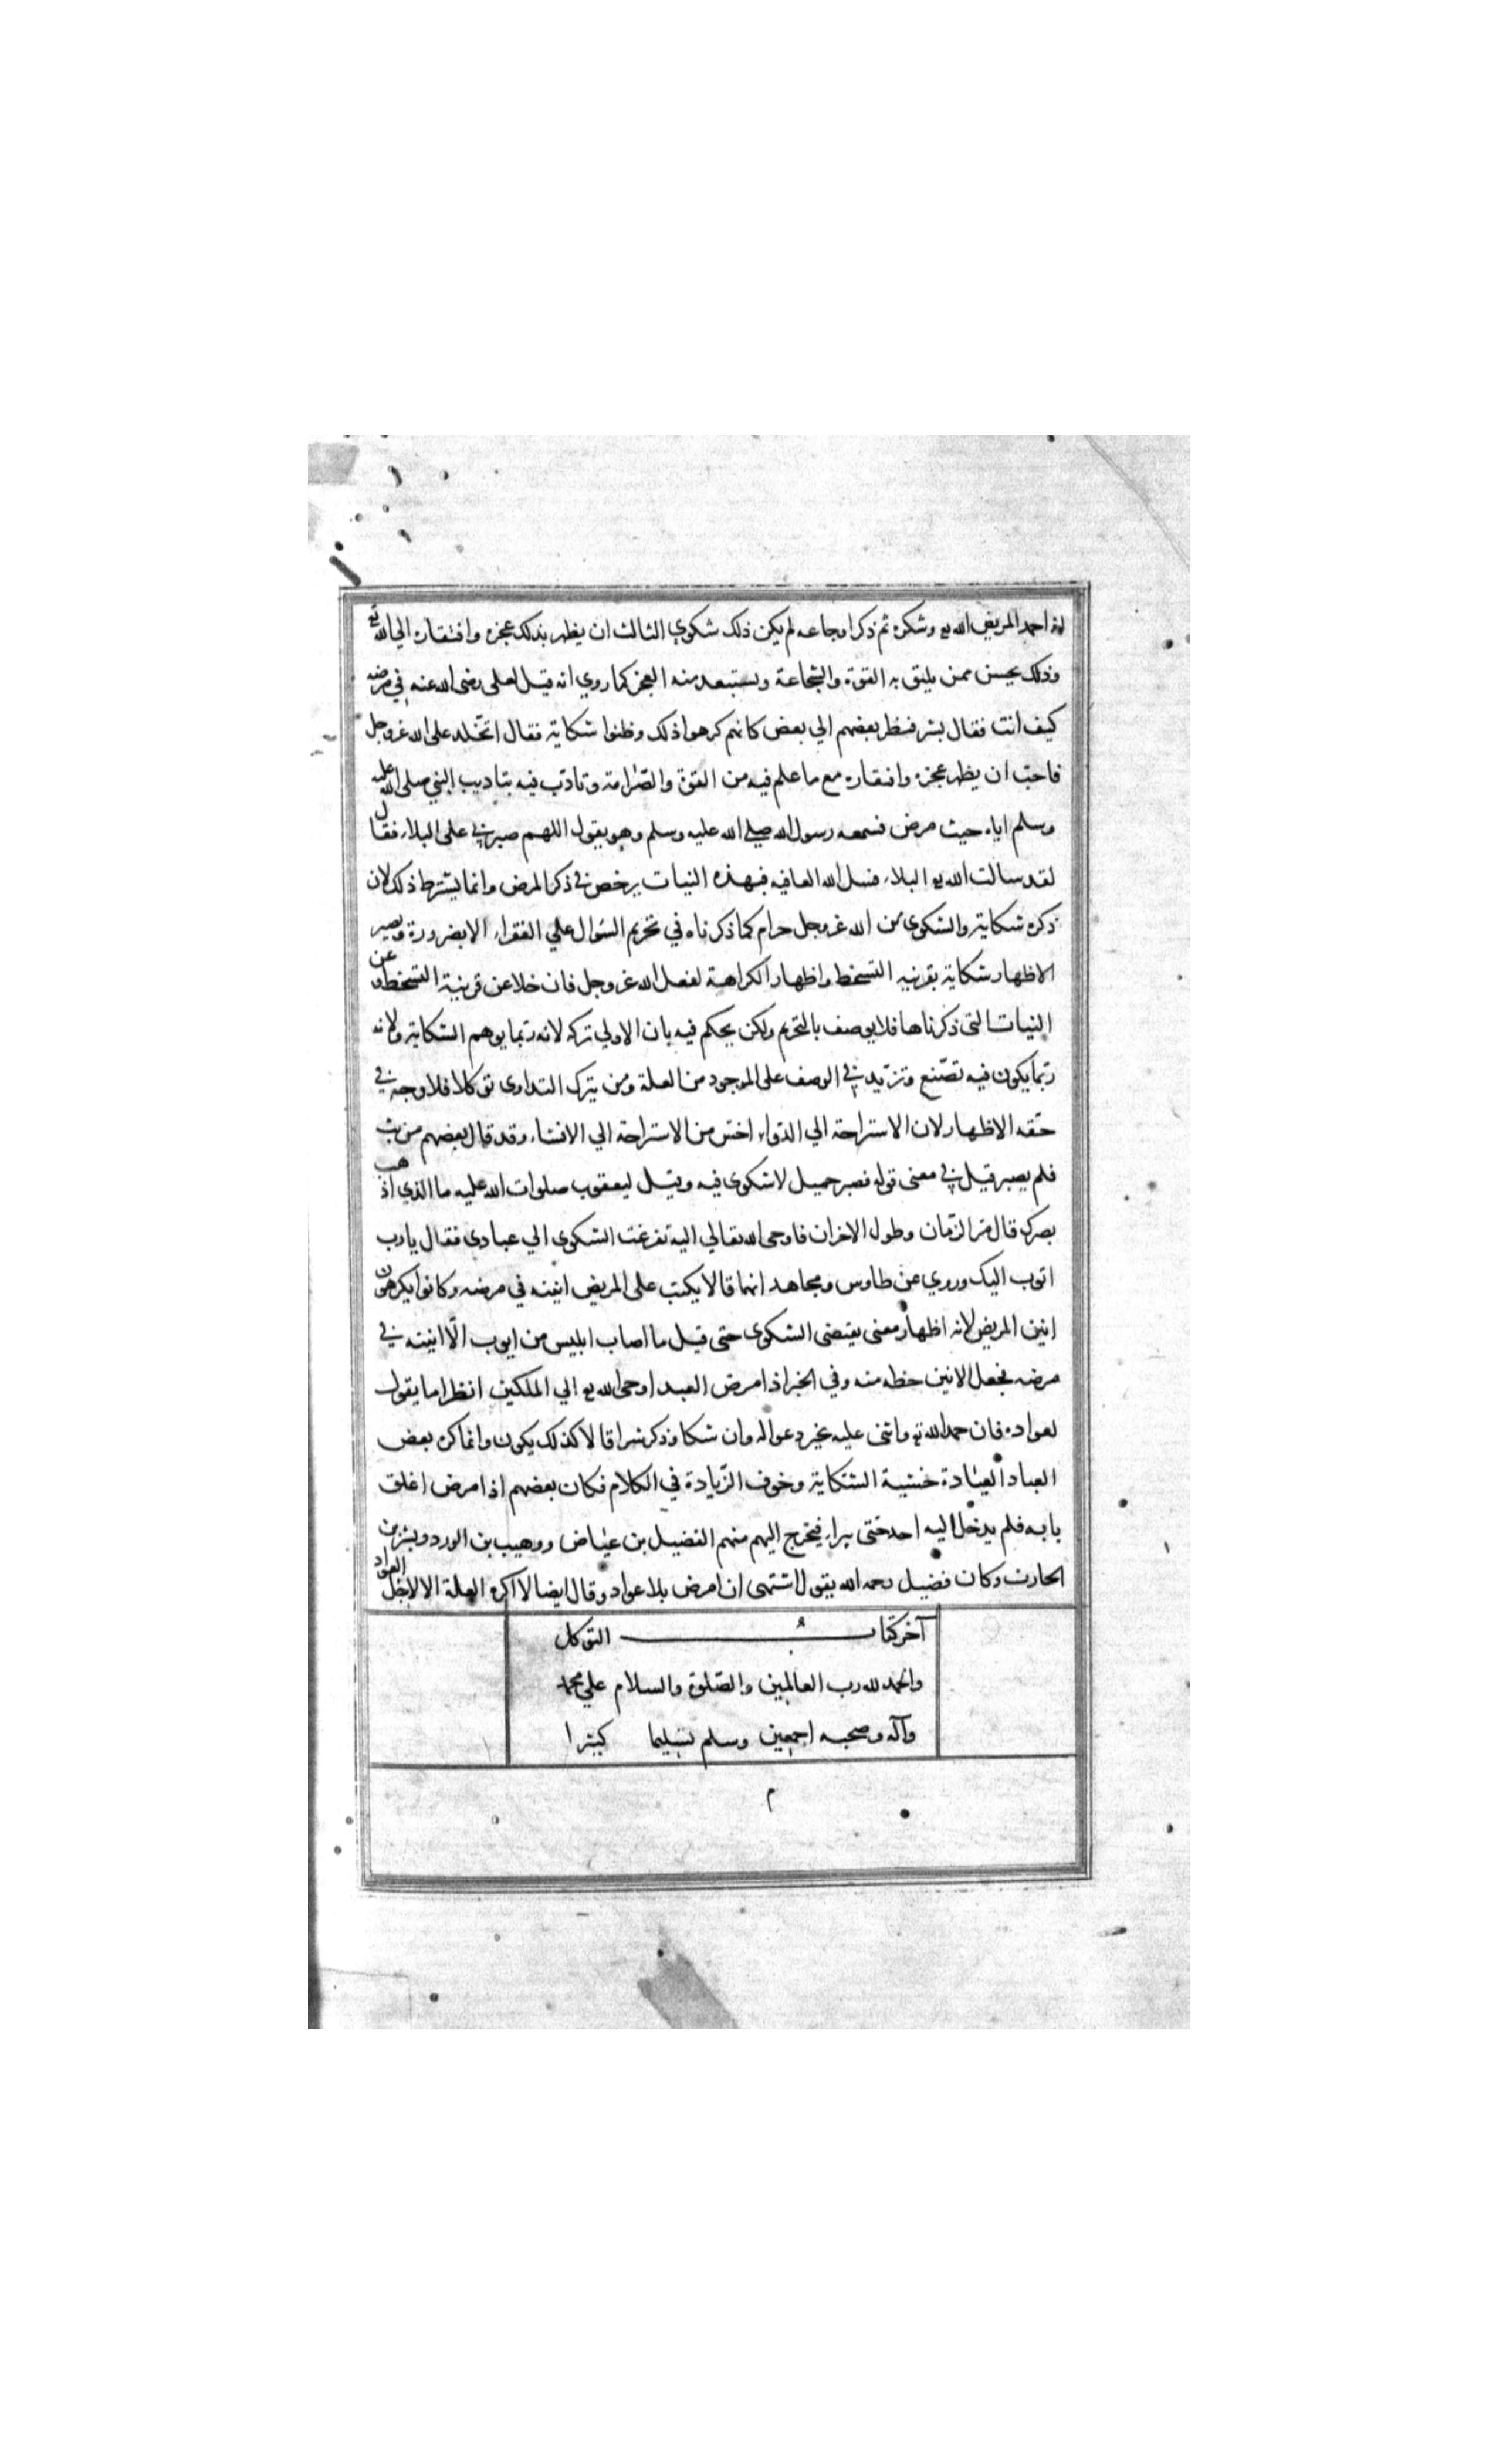 اذا حمد المريض الله تع وشكره ثم ذكر اوجاعه لم يكن ذلك شكوي الثالث ان يظهر بذلك عجزه وافتقاره الي الله تع
وذلك يحسن ممن يليق به القوة والشجاعة ويستبعد منه العجز كما روي انه قيل لعلى رضى الله عنه في مرضه
كيف انت فقال بشر فنظر بعضهم الي بعض كانهم كرهوا ذلك وظنوا شكاية فقال اتجلد على الله عز وجل
فاحب ان يظهر عجزه وافتقاره مع ما علم فيه من القوة والصّرامة وتادّب فيه بتاديب النبي صلى الله عليه
وسلم اياه حيث مرض فسمعه رسول الله صلي الله عليه وسلم وهو يقول اللهم صبرني على البلاء فقال
لقد سالت الله تع البلاء فسل الله العافيه فبهذه النيات يرخص في ذكر المرض وانما يشترط ذلك لان
ذكره شكاية والشكوى من الله عز وجل حرام كما ذكرناه في تحريم السّوال علي الفقراء الا بضرورة ويصير
الاظهار شكاية بقرنيه التسخط واظهار الكراهة لفعل الله عز وجل فان خلا عن قرنية التسخط وعن
النيات التى ذكرناها فلا يوصف بالتحريم ولكن يحكم فيه بان الاولي تركه لانه ربّما يوهم الشكاية ولانه
ربّما يكون فيه تصّنع وتزيّد في الوصف على الموجود من العلة ومن يترك التداوى توكلا فلا وجه في
حقه الاظهار لان الاستراحة الي الدّواء اخسّ من الاستراحة الي الافشاء وقد قال بعضهم من بث
فلم يصبر قيل في معنى قوله فصبر جميل لا شكوى فيه وقيل ليعقوب صلوات الله عليه ما الذي اذهب
بصرك قال مّر الزّمان وطول الاحزان فاوحى الله تعالي اليه تفرغت الشكوى الي عبادى فقال يا رب
اتوب اليك وروي عن طاوس ومجاهد انهما قالا يكتب على المريض انينه في مرضه وكانوا يكرهون
انين المريض لانه اظهار معنى يقتضى الشكوى حتى قيل ما اصاب ابليس من ايوب الّا انينه في
مرضه فجعل الانين حظه منه وفي الخبر اذا مرض العبد اوحى الله تع الي الملكين انظرا ما يقول
لعواده فان حمد الله تع واثنى عليه بخير دعوا له وان شكا وذكر شرا قالا كذلك يكون وانما كره بعض
العباد العيادة خشية الشكاية وخوف الزّيادة في الكلام فكان بعضهم اذا مرض اغلق
بابه فلم يدخل اليه احد حتى يبراء فيخرج اليهم منهم الفضيل بن عياض ووهيب بن الورد وبشر بن
الحارث وكان فضيل رحمه الله يقول اشتهى ان امرض بلا عواد وقال ايضا لا اكره العلة الا لاجل العواد
آخر كتاب التوكل
والحمد لله رب العالمين والصّلوة والسلام علي محمد
وآله وصحبه اجمعين وسلم تسليما كثيرا
م